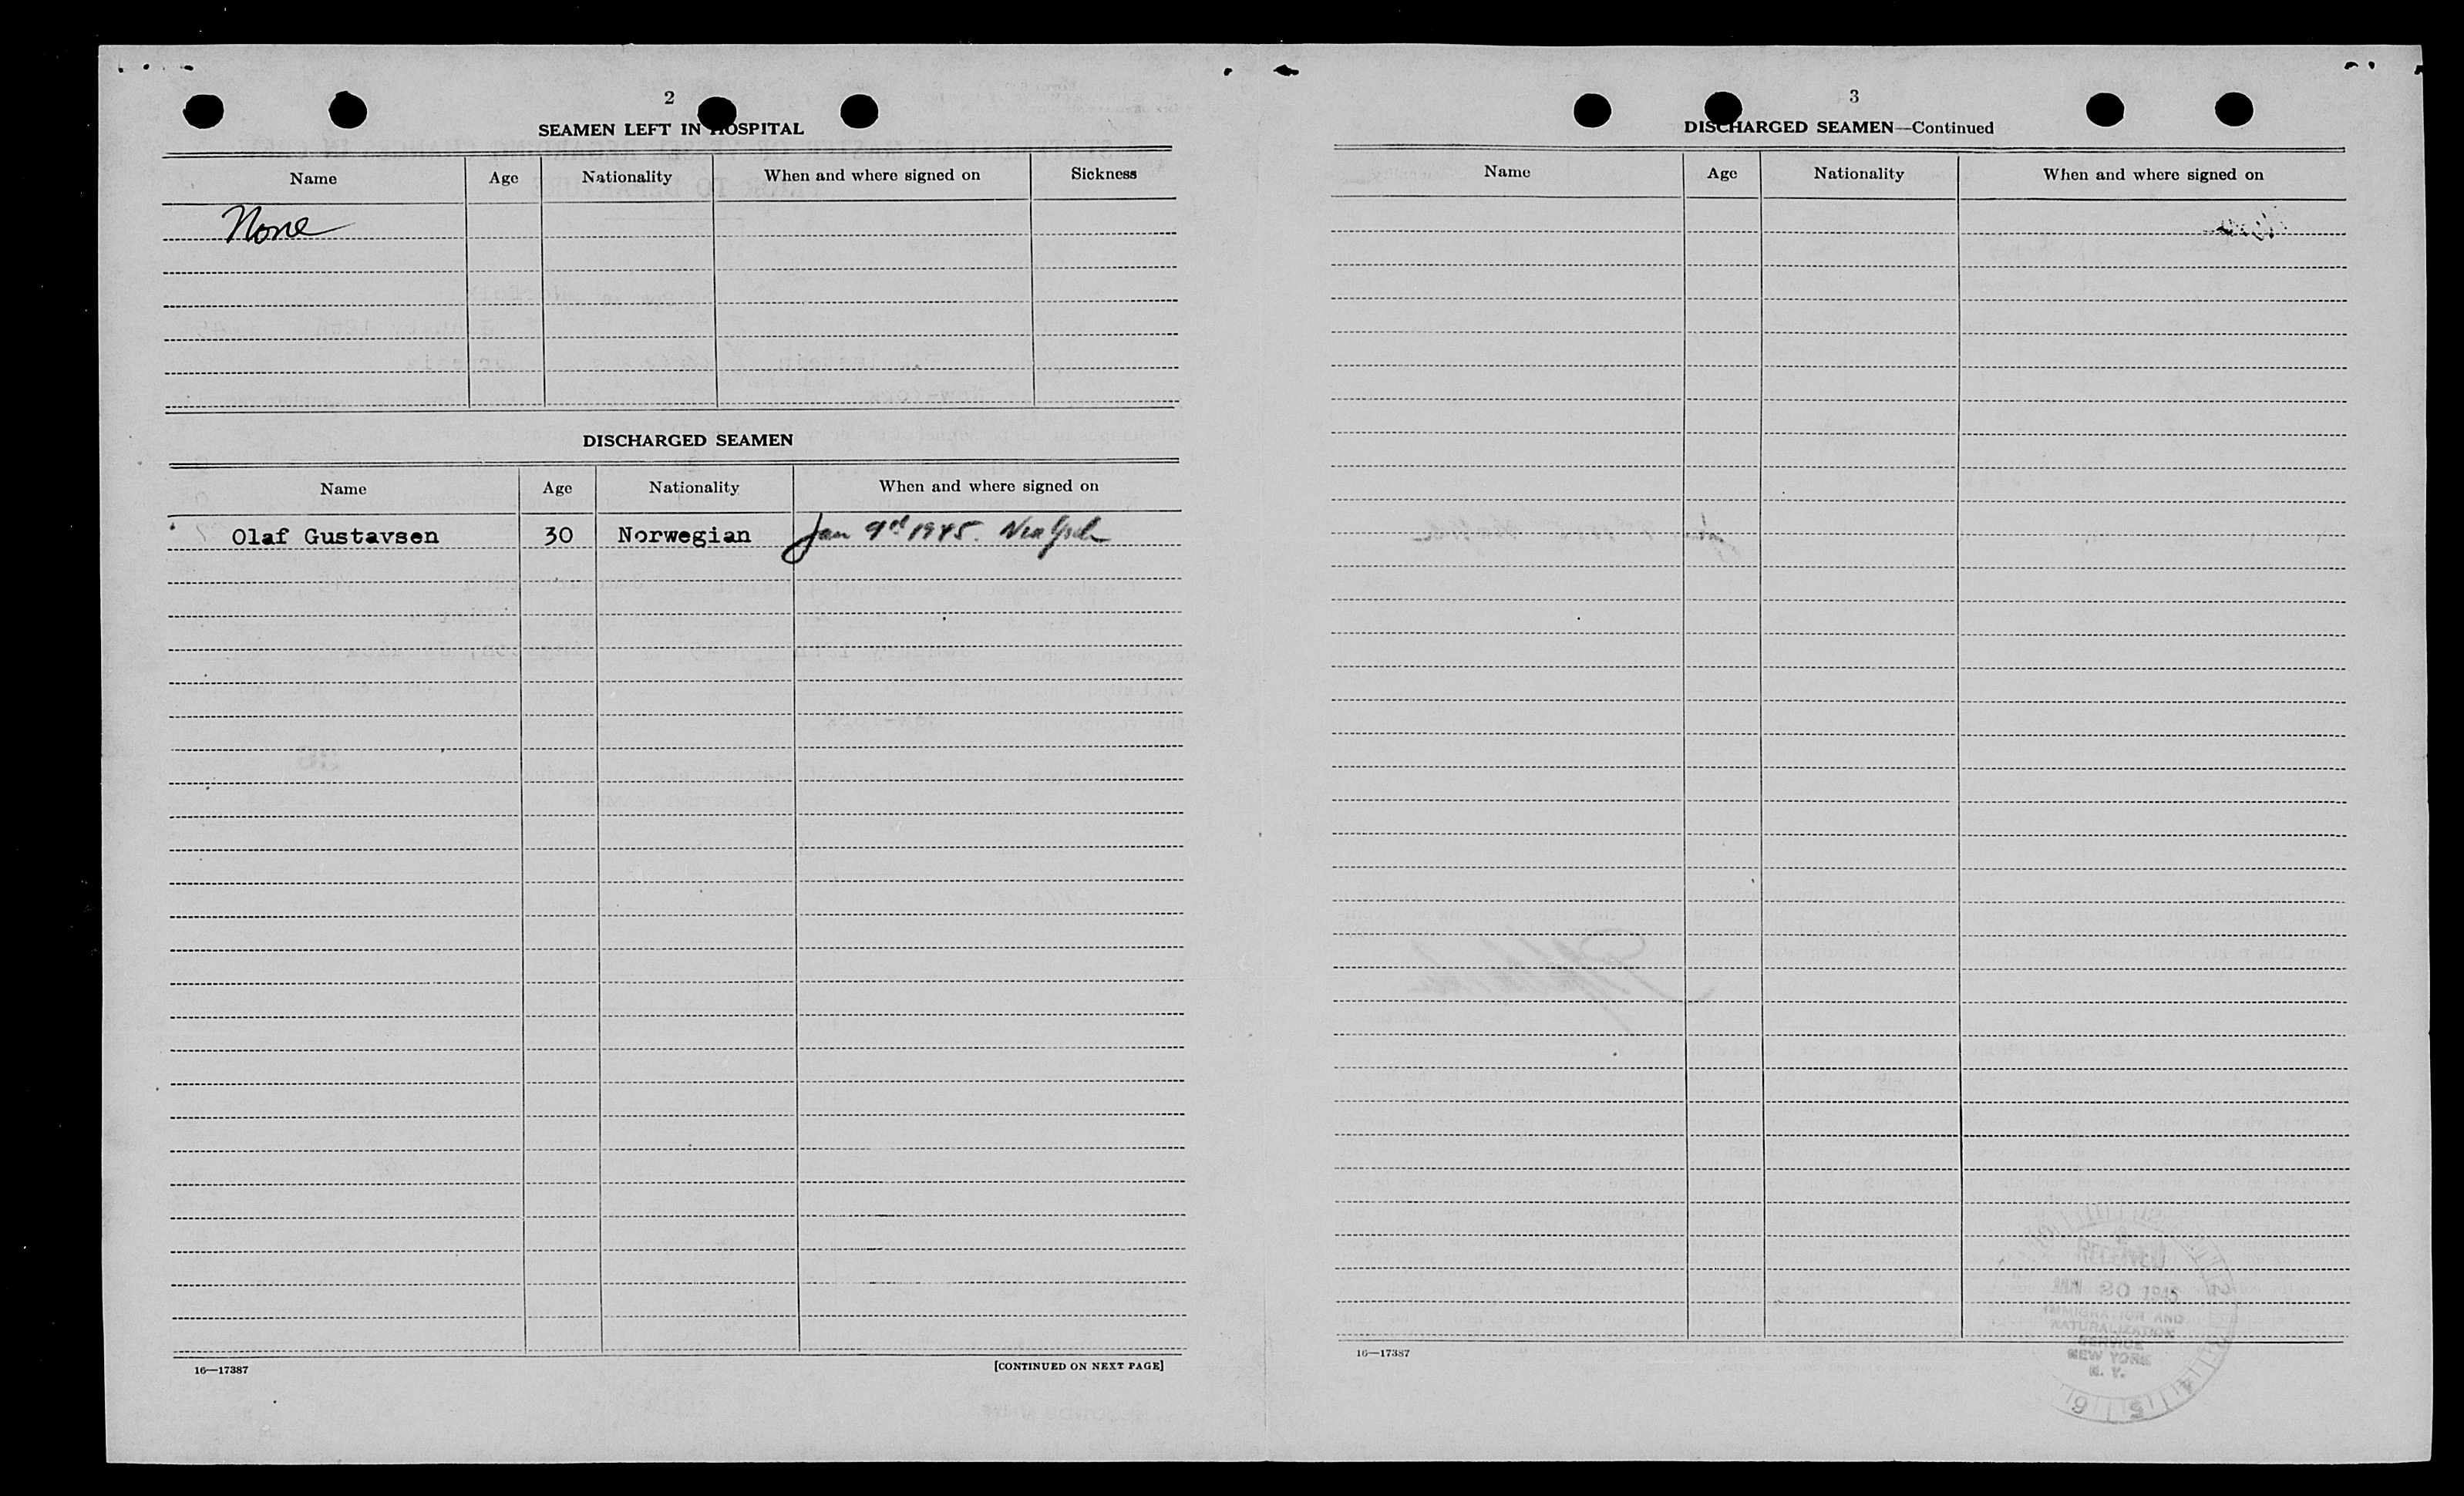 2
SEAMEN LEFT IN HOSPITAL
Name Age Nationality When and where signed on Sickness
None
DISCHARGED SEAMEN
Name Age Nationality When and where signed on
Olaf Gustavsen 30 Norwegian Jan 9rd 1945. New York
16—17387 [CONTINUED ON NEXT PAGE]
3
DISCHARGED SEAMEN—Continued
Name Age Nationality When and where signed on
RECEIVED
JAN 20 1945
IMMIGRATION AND
NATURALIZATION
SERVICE
NEW YORK
N. Y.
16—17387